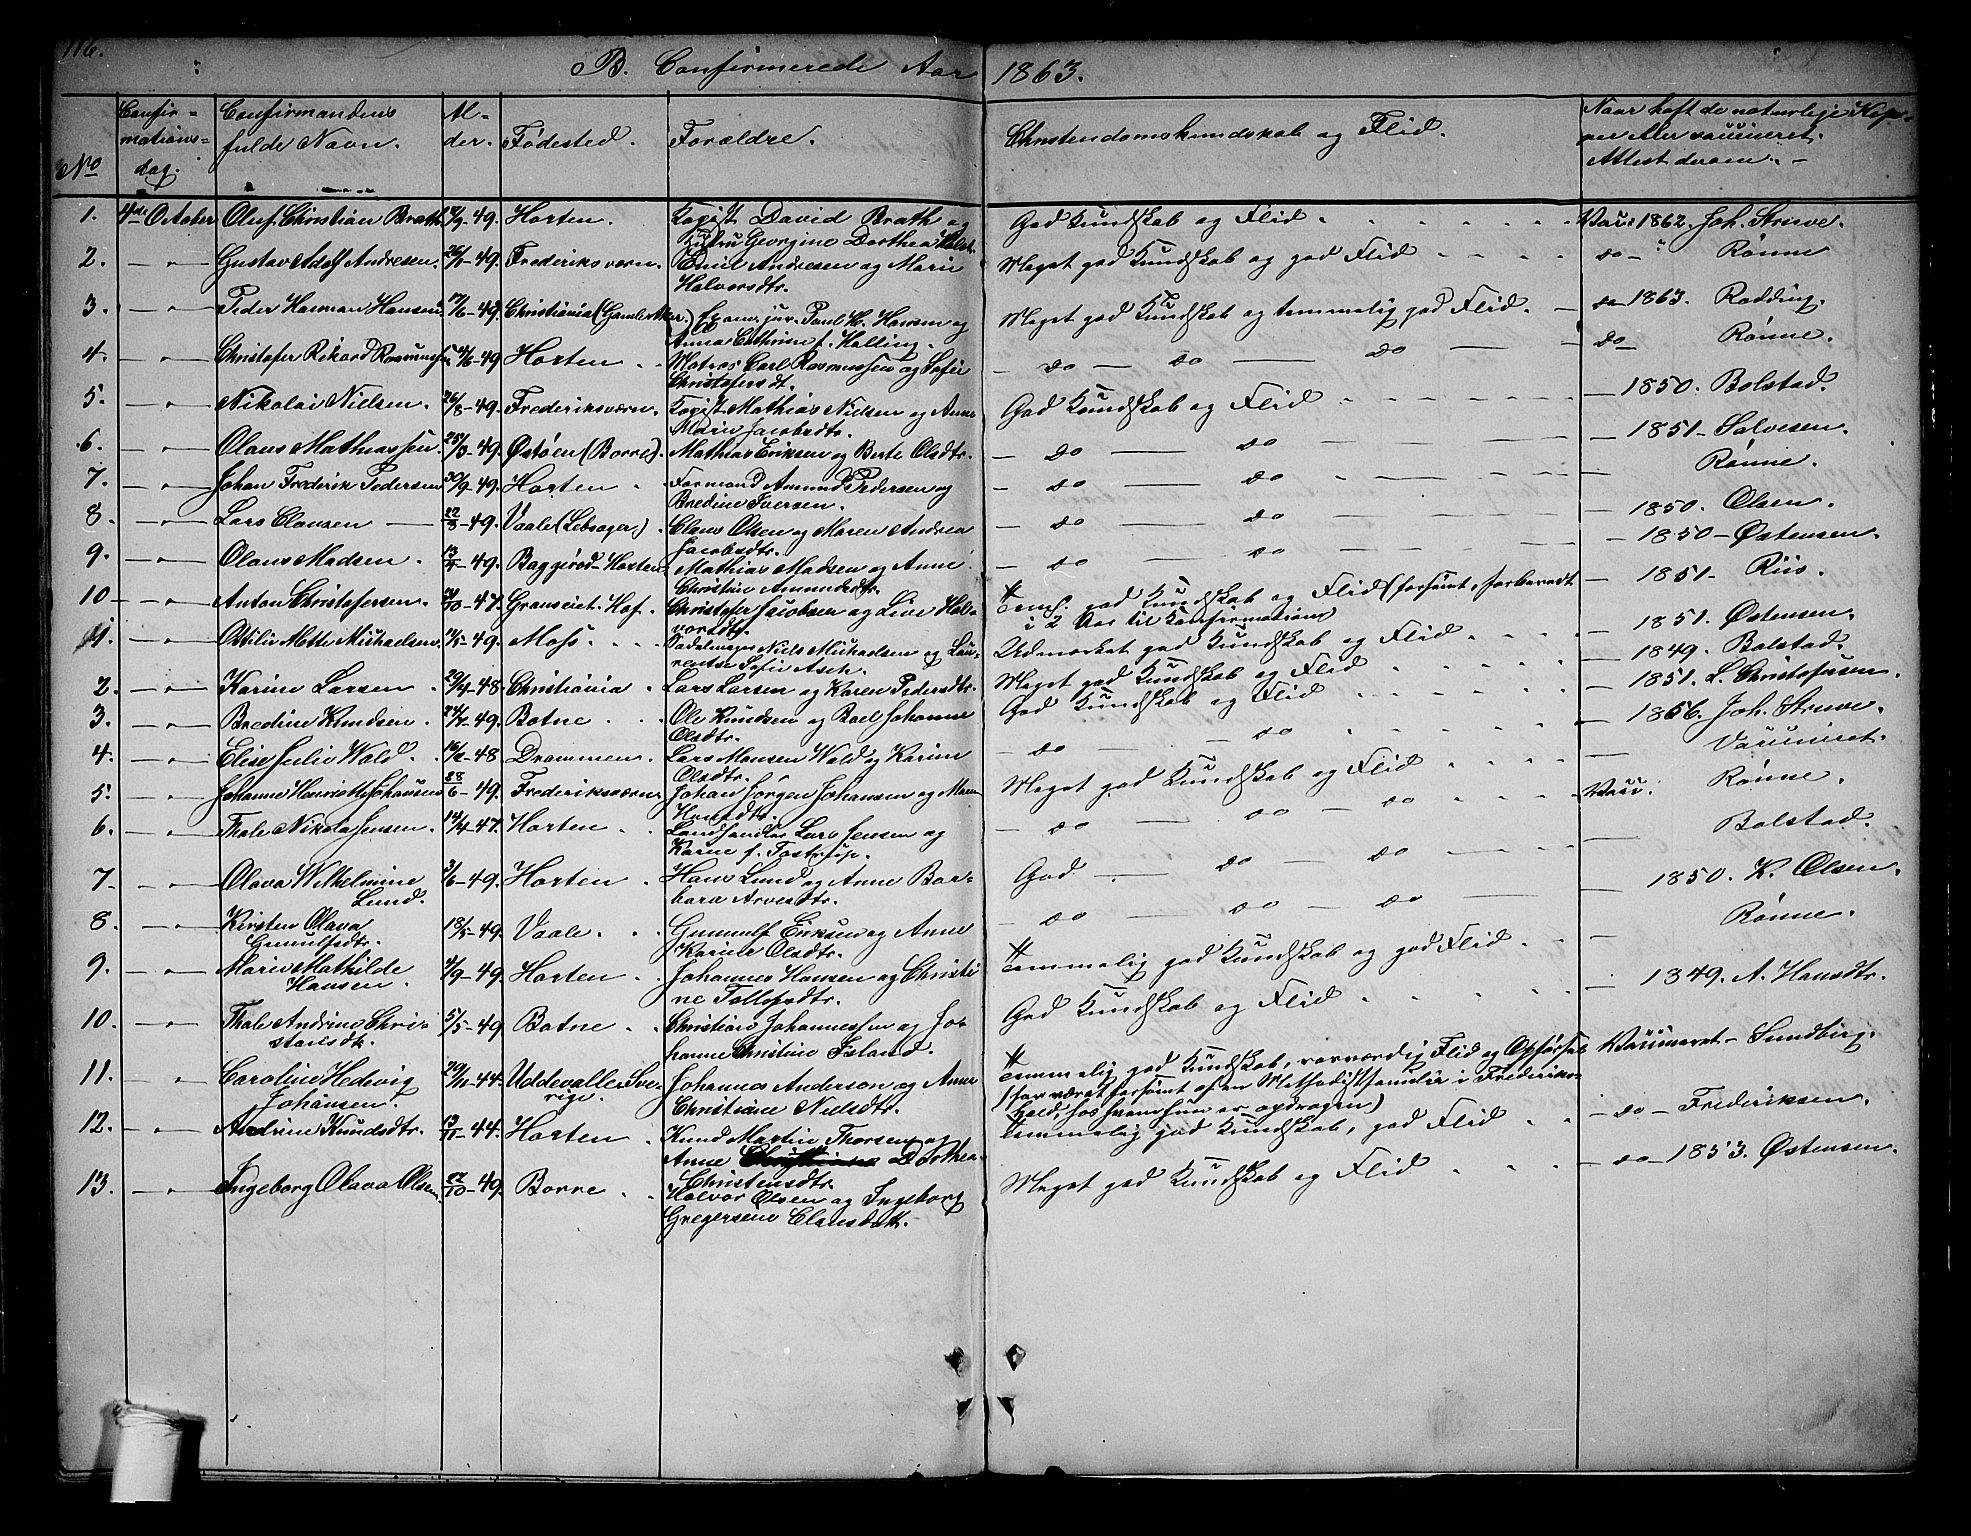 116.
B. Confirmerede Aar 1863.
No
Confir-
mations-
dag.
Confirmandens
fulde Navn.
Al-
der.
Fødested.
Forældre.
Christendomskundskab og Flid.
Naar haft de naturlige Kop-
per eller vaccineret.
Attest derom.
1. 4de October Oluf Christian Brath 49. Horten. David Brath og
Hustru Georgine Dorthea
God Kundskab og Flid Vacc: 1862. Joh. Struve.
2. — " — Gustav Adolf Andresen. 49. Frederiksværn. Emil Andresen og Marie
Halvorsdtr.
Meget god Kundskab og god Flid do — " Rønne
3. — " — Peder Herman Hansen 17/6-49. Christiania (Gamle Aker.) Exam. jur. Paul H. Hansen og
Anna Cathrine f. Halling.
Meget god Kundskab og temmelig god Flid. — do — 1863. Rødding.
4. — " — Christofer Rikard Rasmussen 49 Horten Matros Carl Rasmussen og Sofie
Christofersdt.
— do — do — do — do — Rønne.
5. — " — Nikolai Nielsen. 26/8-49. Frederiksværn. Mathias Nielsen og Anne
Marie Jacobsdtr.
God Kundskab og Flid — 1850. Bolstad.
6. — " — Olaus Mathiassen. 49. Østøen (Borre). Mathias Eriksen og Berte Olsdtr.
— do — do — 1851 - Salvesen.
7. — " — Johan Frederik Pedersen 30/9-49. Horten Formand Amund Pedersen og
Bredine Iversen.
— do — do — Rønne.
8. — " — Lars Clausen — 22/8-49. Vaale (Lebsager.) Claus Olsen og Maren Andrea
Jacobsdtr.
— do — do — 1850. Olsen.
9. — " — Olaus Madsen. 49. Baggerød - Horten Mathias Madsen og Anne
Christine Amundsdtr.
— do — do — 1850 - Østensen.
10 — " — Anton Christofersen. 47. Granseiet. Hof. Christofer Jacobsen og Live Hal-
vorsdtr.
Teml. god Kundskab og Flid (forsømt, forberedt
i 2 Aar til Konfirmation) — 1851 - Riis.
1. — " — Ottilie Mette Michaelsen. 49. Moss. Sadelmager Niels Michaelsen og Lau-
rentse Sofie
Udmærket god Kundskab og Flid — 1851. Østensen.
2. — " — Karine Larsen 29/4-48. Christiania. Lars Larsen og Karen Pedersdtr.
Meget god Kundskab og Flid — 1849. Bolstad.
3. — " — Bredine Knudsen. 49. Botne. Ole Knudsen og Boel Johanne
Olsdtr.
God Kundskab og Flid — 1851. L. Christofersen.
4. — " — Elise Julie Wold. 48 Drammen. Lars Hansen Wold og Karine
Olsdtr.
— do — do — 1856. Joh. Struve.
5. — " — Johanne Henriette Johansen 28/6-49. Frederiksværn. Johan Jørgen Johansen og Maren
Hansdtr.
Meget god Kundskab og Flid — Vaccineret.
6. — " — Thale Nikola Jensen. 14/4-47. Horten. Landhandler Lars Jensen og
Karine f. Tostrup.
— do — do — do Vacc. Rønne.
Bolstad.
7 — " — Olava Wilhelmine
Lund.
3/6-49. Horten. Hans Lund og Anne Bar-
bara Arvesdtr.
God — do — do — 1850. K. Olsen.
8. — " — Kirsten Olava
Gunulfsdtr.
18/5-49. Vaale. Gunnulf Eriksen og Anne
Karine Olsdtr.
— do — do — do — Rønne.
9. — " — Marie Mathilde
Hansen.
4/9-49. Horten. Johannes Hansen og Christi-
ne Tollefsdtr.
Temmelig god Kundskab og god Flid. — 1849. A. Hansdtr.
10. — " — Thale Andrine Chri-
stansdtr.
5/5-49 Botne. Christian Johannessen og Jo-
hanne Christine Island.
God Kundskab og Flid Vaccineret - Sundbirg.
11. — " — Caroline Hedevig
Johansen.
29/11-44. Uddevalle Sve-
rige.
Johannes Anderson og Anne
Christiane Nielsdtr.
Temmelig god Kundskab, roesværdig Flid og Opførsel
(har været forsømt af en Methodistfamilie i Frederiks-
hald, hos hvem hun er opdragen)
— do — Frederiksen.
12. — " — Andrine Knudsdtr. 44. Horten. Knud Martin Thorsen og
Anne Dorthea
Christensdtr.
Temmelig god Kundskab, god Flid — do — 1853. Østensen.
13. — " — Ingeborg Olava Olsen. 49. Borre. Halvor Olsen og Ingeborg
Gregersine Clausdatt.
Meget god Kundskab og Flid